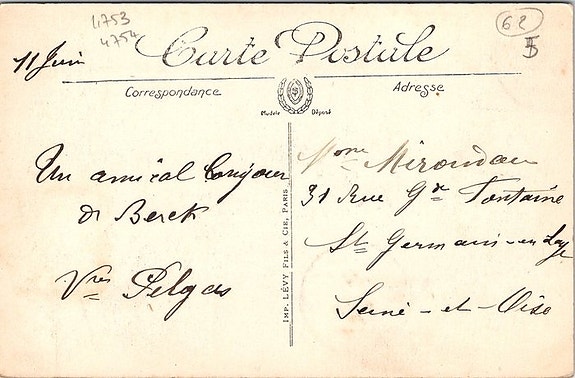 4753
4754
62
11 Juin
Carte Postale
Correspondance
Adresse
Modèle Déposé
Un amical bonjour
de Berck
Vves Pelgas
IMP. LÉVY FILS & CIE, PARIS
Mme Mirondau
31 Rue Gde Fontaine
St Germain-en-Laye
Seine-et-Oise